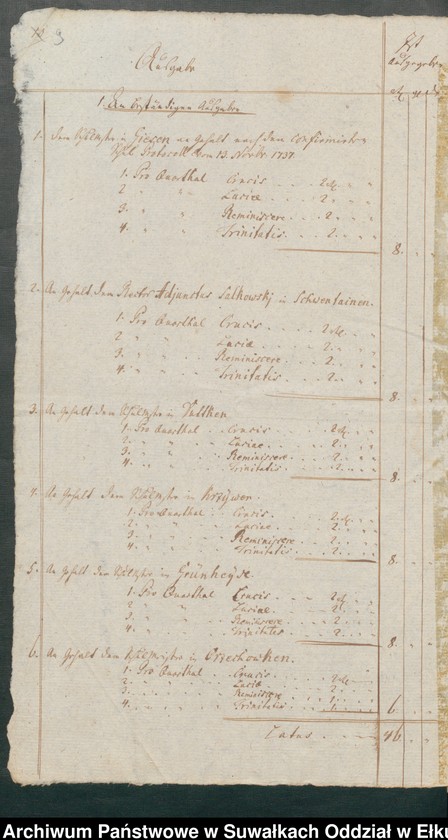 9
Ausgabe
Ist
Ausgegeben
1. An beständigen Ausgaben
1. Dem Schulmstr in Giesen an Gehalt nach dem confirmirten
Schul Protocoll vom 13. Novbr. 1737.
1. Pro Quarthal Crucis . . . 2 rtl. " "
2. " " Luciae . . . 2. " "
3. " " Reminiscere . . 2. " "
4. " " Trinitatis . . . 2. " "
8. . .
2. An Gehalt dem Rector Adjunctus Salkowskj in Schwentainen.
1. Pro Quarthal Crucis . . . 2 rtl. . .
2 " " Luciae . . . 2. . .
3. " " Reminiscere . . 2. . .
4. " " Trinitatis . . . 2. . .
8. . .
3. An Gehalt dem Schulmstr in Duttken
1. Pro Quarthal . . Crucis . . . 2 rtl. . .
2. " " Luciae . . . 2. . .
3. " " Reminiscere . . 2. . .
4. " " Trinitatis . . . 2. . .
8. . .
4. An Gehalt dem Schulmstr in Krzywen.
1. Pro Quarthal . . Crucis . . . 2 rtl. . .
2. " " Luciae . . . 2. . .
3. " " Reminiscere . . 2. . .
4. " " Trinitatis . . . 2. . .
8. . .
5. An Gehalt dem Schulmstr in Grünheyde
1. Pro Quarthal Crucis . . . 2 rtl. . .
2 " " Luciae . . . 2. . .
3. " " Reminiscere . . 2. . .
4. " " Trinitatis . . . 2. . .
8. . .
6. An Gehalt dem Schulmeistr in Orzechowken.
1. Pro Quarthal . . Crucis . . . 2 rtl. . .
2. " " Luciae . . . 2. . .
3. " " Reminiscere . . 1. . .
4. " " Trinitatis . . . 1. . .
6. . .
Latus . . . 46 . .
Archiwum Państwowe w Suwałkach Oddział w Ełku